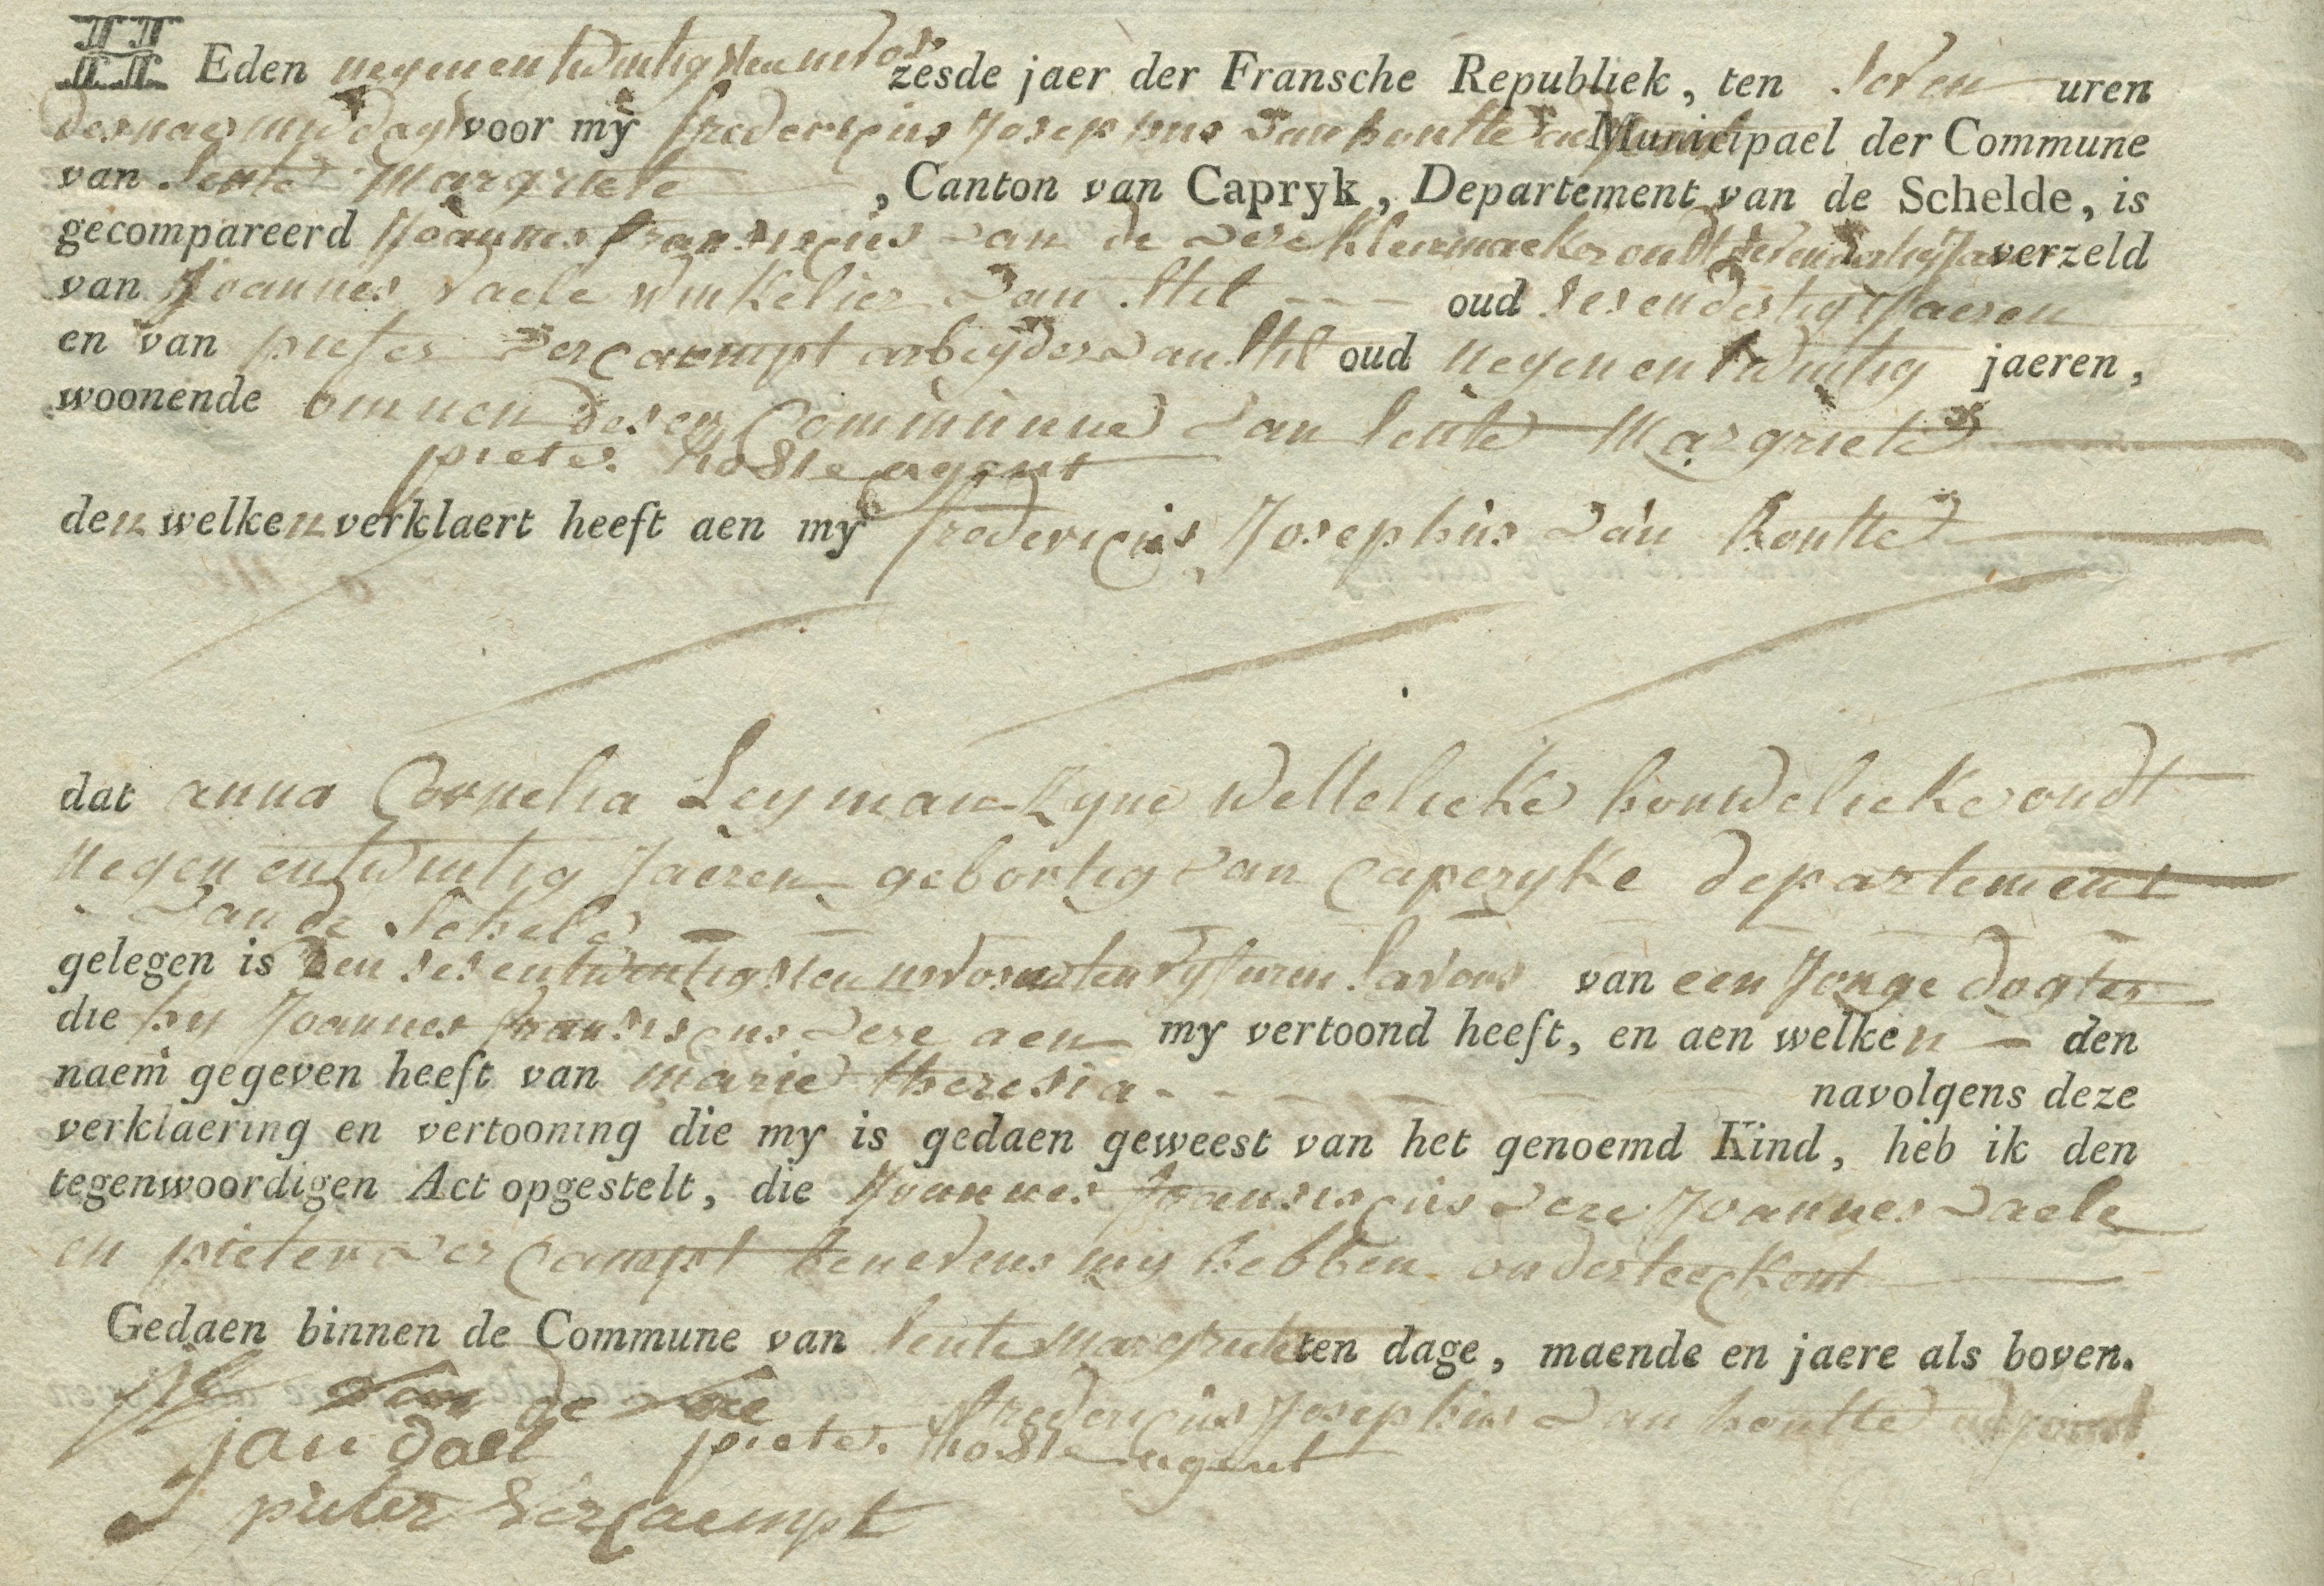 HEden negenentwintigsten nivos zesde jaer der Fransche Republiek, ten seven uren
des naer middags voor my fredericus Josephus van houtte adjoint Municipael der Commune
van sente Margriete, Canton van Capryk, Departement van de Schelde, is
gecompareerd Joannes fransiscus van de vere kleermaeker oudt verzeld
van Joannes daele winkelier van stil --- oud sesendertig Jaeren
en van pieter vercaempt arbeyder van stil oud negenentwintig jaeren,
woonende binnen deser Communne van sente Margriete
pieter hoste agent
den welken verklaert heeft aen my fredericus Josephus van houtte
dat anna Cornelia Leyman zyne wettelieke houwelieke oudt
negenentwintig Jaeren gebortig van caperyke departement
van de Scheld
gelegen is den sesentwintigsten nivos ten vyf uren savons van een Jonge dogter
die by Joannes fransiscus vere aen my vertoond heeft, en aen welken - den
naem gegeven heeft van marie theresia - - - navolgens deze
verklaering en vertooning die my is gedaen geweest van het genoemd Kind, heb ik den
tegenwoordigen Act opgestelt, die Joannes fransiscus vere Joannes daele
en pieter vercampt benevens my hebben onderteeckent
Gedaen binnen de Commune van sente Margriete ten dage, maende en jaere als boven.
van de vere
fredericus Josephus van houtte adjoint
jan dael pieter hoste agent
pieter vercaempt